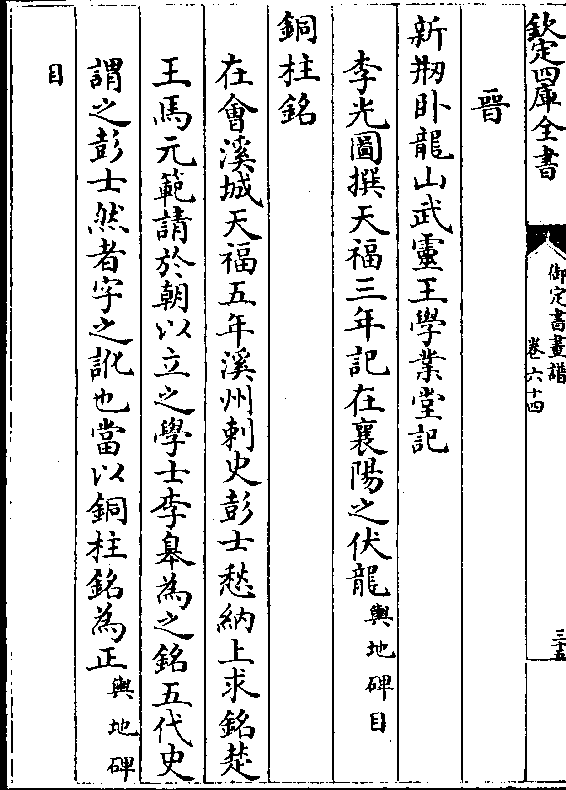 欽定四庫全書
御定書畫譜
卷六十四
三十五
晉
新剏卧龍山武靈王學業堂記
李光圖撰天福三年記在襄陽之伏龍輿地碑目
銅柱銘
在會溪城天福五年溪州刺史彭士愁納上求銘楚
王馬元範請於朝以立之學士李皋為之銘五代史
謂之彭士然者字之訛也當以銅柱銘為正輿地碑
目